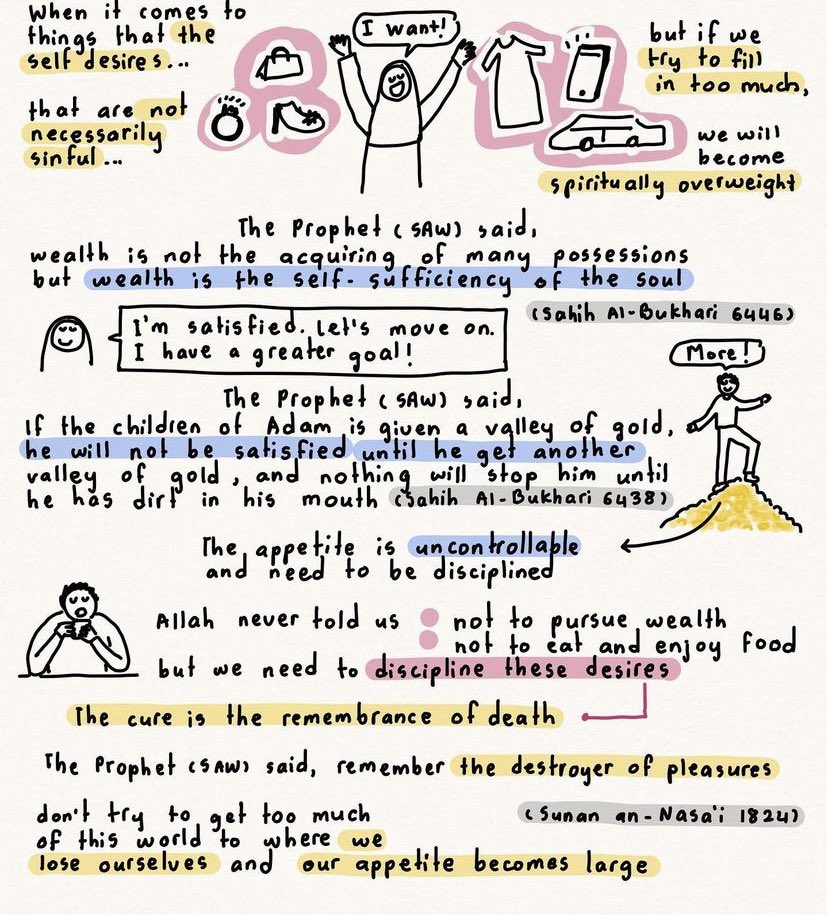 When it comes to
things that the
self desires...
that are not
necessarily
sinful...
I want!
but if we
try to fill
in too much,
we will
become
spiritually overweight
The Prophet (SAW) said,
wealth is not the acquiring of many possessions
but wealth is the self-sufficiency of the soul
(Sahih Al-Bukhari 6446)
I'm satisfied. Let's move on.
I have a greater goal!
More!
The Prophet (SAW) said,
If the children of Adam is given a valley of gold,
he will not be satisfied until he get another
valley of gold, and nothing will stop him until
he has dirt in his mouth (Sahih Al-Bukhari 6438)
The appetite is uncontrollable
and need to be disciplined
Allah never told us
not to pursue wealth
not to eat and enjoy food
but we need to discipline these desires
The cure is the remembrance of death
The Prophet (SAW) said, remember the destroyer of pleasures
(Sunan an-Nasa'i 1824)
don't try to get too much
of this world to where we
lose ourselves and our appetite becomes large